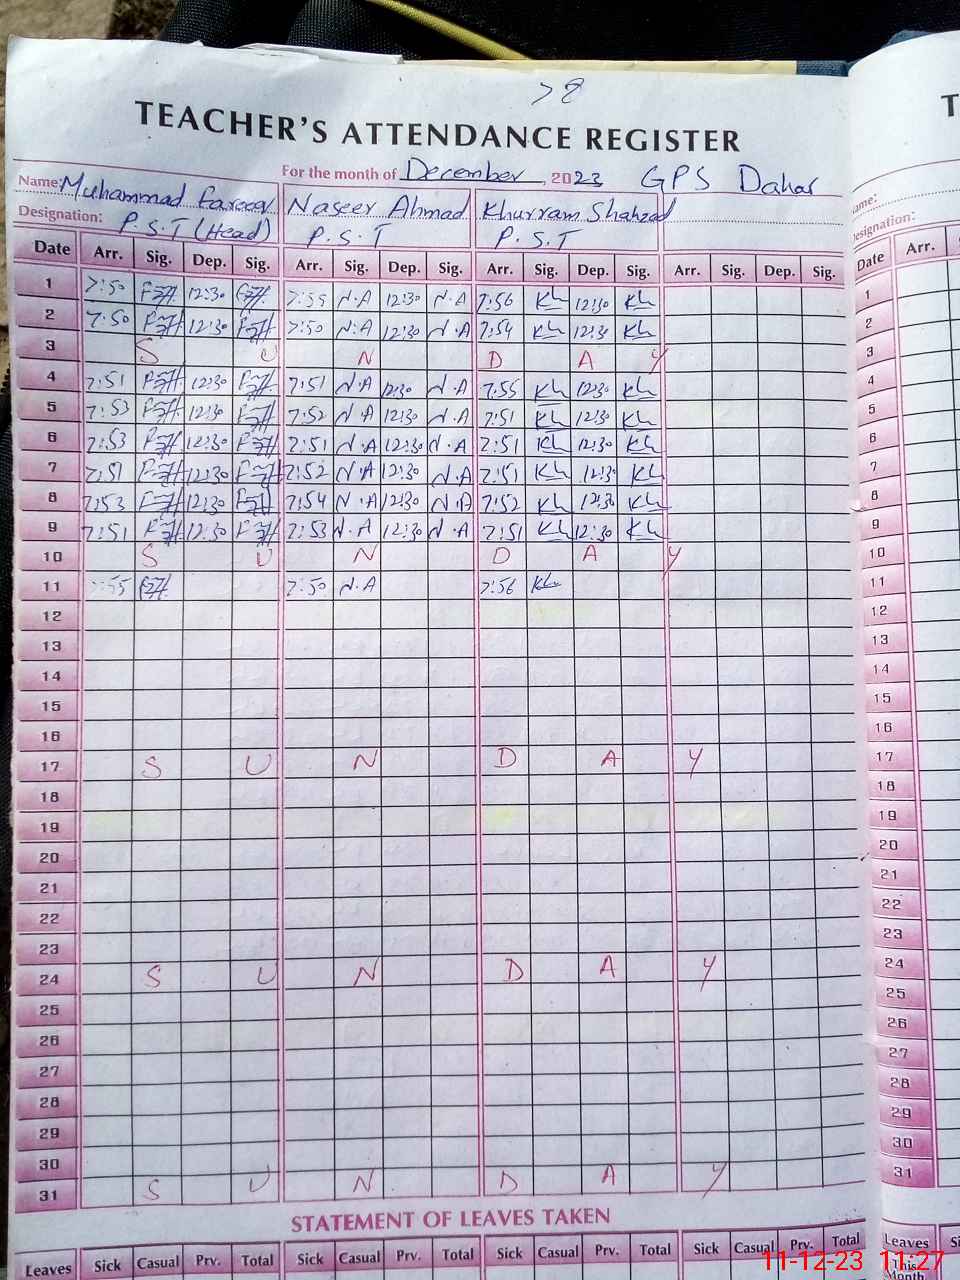 78
TEACHER'S ATTENDANCE REGISTER
For the month of December, 2023 GPS Dahar
Name: Muhammad Fareed Naseer Ahmad Khurram Shahzad
Designation: P.S.T (Head) P.S.T P.S.T
Date Arr. Sig. Dep. Sig. Arr. Sig. Dep. Sig. Arr. Sig. Dep. Sig. Arr. Sig. Dep. Sig.
1 7:50 12:30 7:55 N.A 12:30 N.A 7:56 Kh 12:30 Kh
2 7:50 12:30 7:50 N.A 12:30 N.A 7:54 Kh 12:30 Kh
3 S U N D A Y
4 7:51 12:30 7:51 N.A 12:30 N.A 7:55 Kh 12:30 Kh
5 7:53 12:30 7:52 N.A 12:30 N.A 7:51 Kh 12:30 Kh
6 7:53 12:30 7:51 N.A 12:30 N.A 7:51 Kh 12:30 Kh
7 7:51 12:30 7:52 N.A 12:30 N.A 7:51 Kh 12:30 Kh
8 7:53 12:30 7:54 N.A 12:30 N.A 7:52 Kh 12:30 Kh
9 7:51 12:30 7:53 N.A 12:30 N.A 7:51 Kh 12:30 Kh
10 S U N D A Y
11 7:55 7:50 N.A 7:56 Kh
12
13
14
15
16
17 S U N D A Y
18
19
20
21
22
23
24 S U N D A Y
25
26
27
28
29
30
31 S U N D A Y
STATEMENT OF LEAVES TAKEN
Leaves Sick Casual Prv. Total Sick Casual Prv. Total Sick Casual Prv. Total Sick Casual Prv. Total
T
ame:
esignation:
Date Arr.
1
2
3
4
5
6
7
8
9
10
11
12
13
14
15
16
17
18
19
20
21
22
23
24
25
26
27
28
29
30
31
Leaves Si
This
Month
11-12-23 11:27